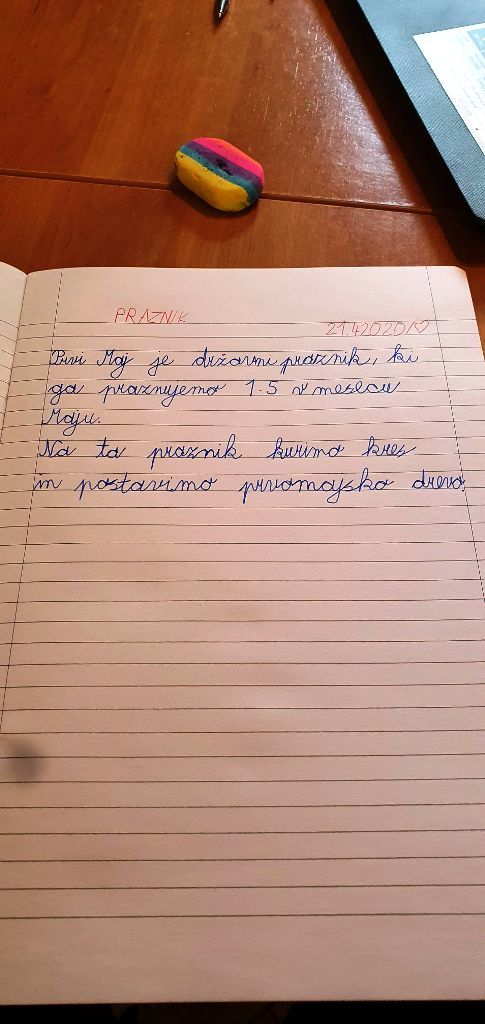 PRAZNIK
21.4.2020/♡
Prvi Maj je državni praznik, ki
ga praznujemo 1.5 v mesecu
Maju.
Na ta praznik kurimo kres
in postavimo prvomajsko drevo.